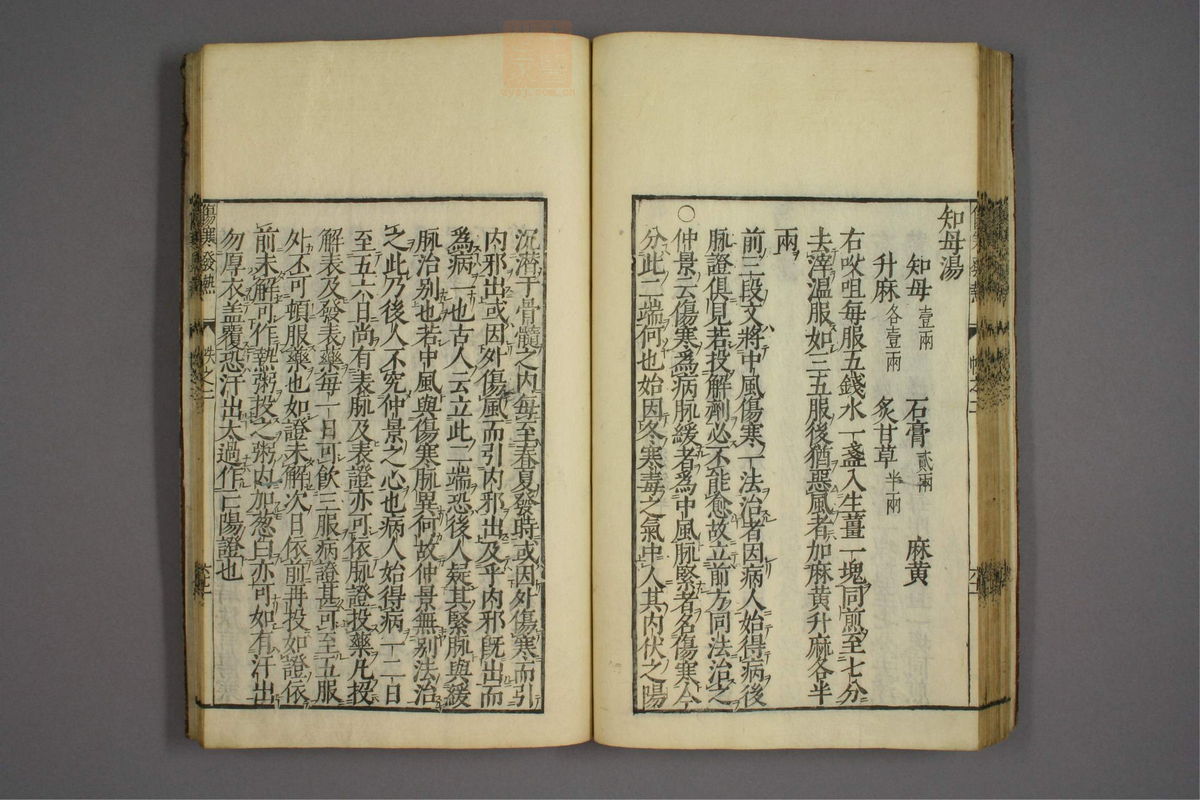 知母湯
知母壹兩 石膏貳兩 麻黄
升麻各壹兩 炙甘草半兩
右㕮咀每服五錢水一盞入生薑一塊同煎至七分
去滓温服如三五服後猶惡風者加麻黄升麻各半
兩
前三段文將中風傷寒一法治者因病人始得病後
脉證俱見若投解劑必不能愈故立前方同法治之
○仲景云傷寒爲病脉緩者爲中風脉緊者名傷寒今
分此二端何也始因冬寒毒之氣中人其内伏之陽
沉潜于骨髓之内每至春夏發時或因外傷寒而引
内邪出或因外傷風而引内邪出及乎内邪既出而
爲病一也古人云立此二端恐後人疑其緊脉與緩
脉治别也若中風與傷寒脉異何故仲景無别法治
之此乃後人不究仲景之心也病人始得病一二日
至五六日尚有表脉及表證亦可依脉證投藥凡投
解表及發表藥每一日可飲三服病證甚可至五服
外不可頓服藥也如證未解次日依前再投如證依
前未解可作熱粥投之粥内加葱白亦可如有汗出
勿厚衣盖覆恐汗出太過作亡陽證也
傷寒發熱
帙之二